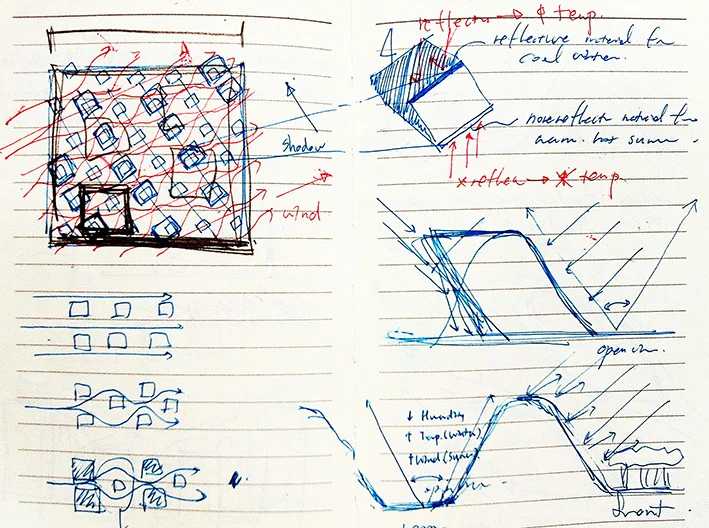 Shadow
wind
reflector → ¢ temp.
reflective material for
cool winter.
material for
warm. hot summer.
x reflec → temp.
open
↓ Humidity
↑ Temp. (Winter)
↑ Wind (Summer)
open
front